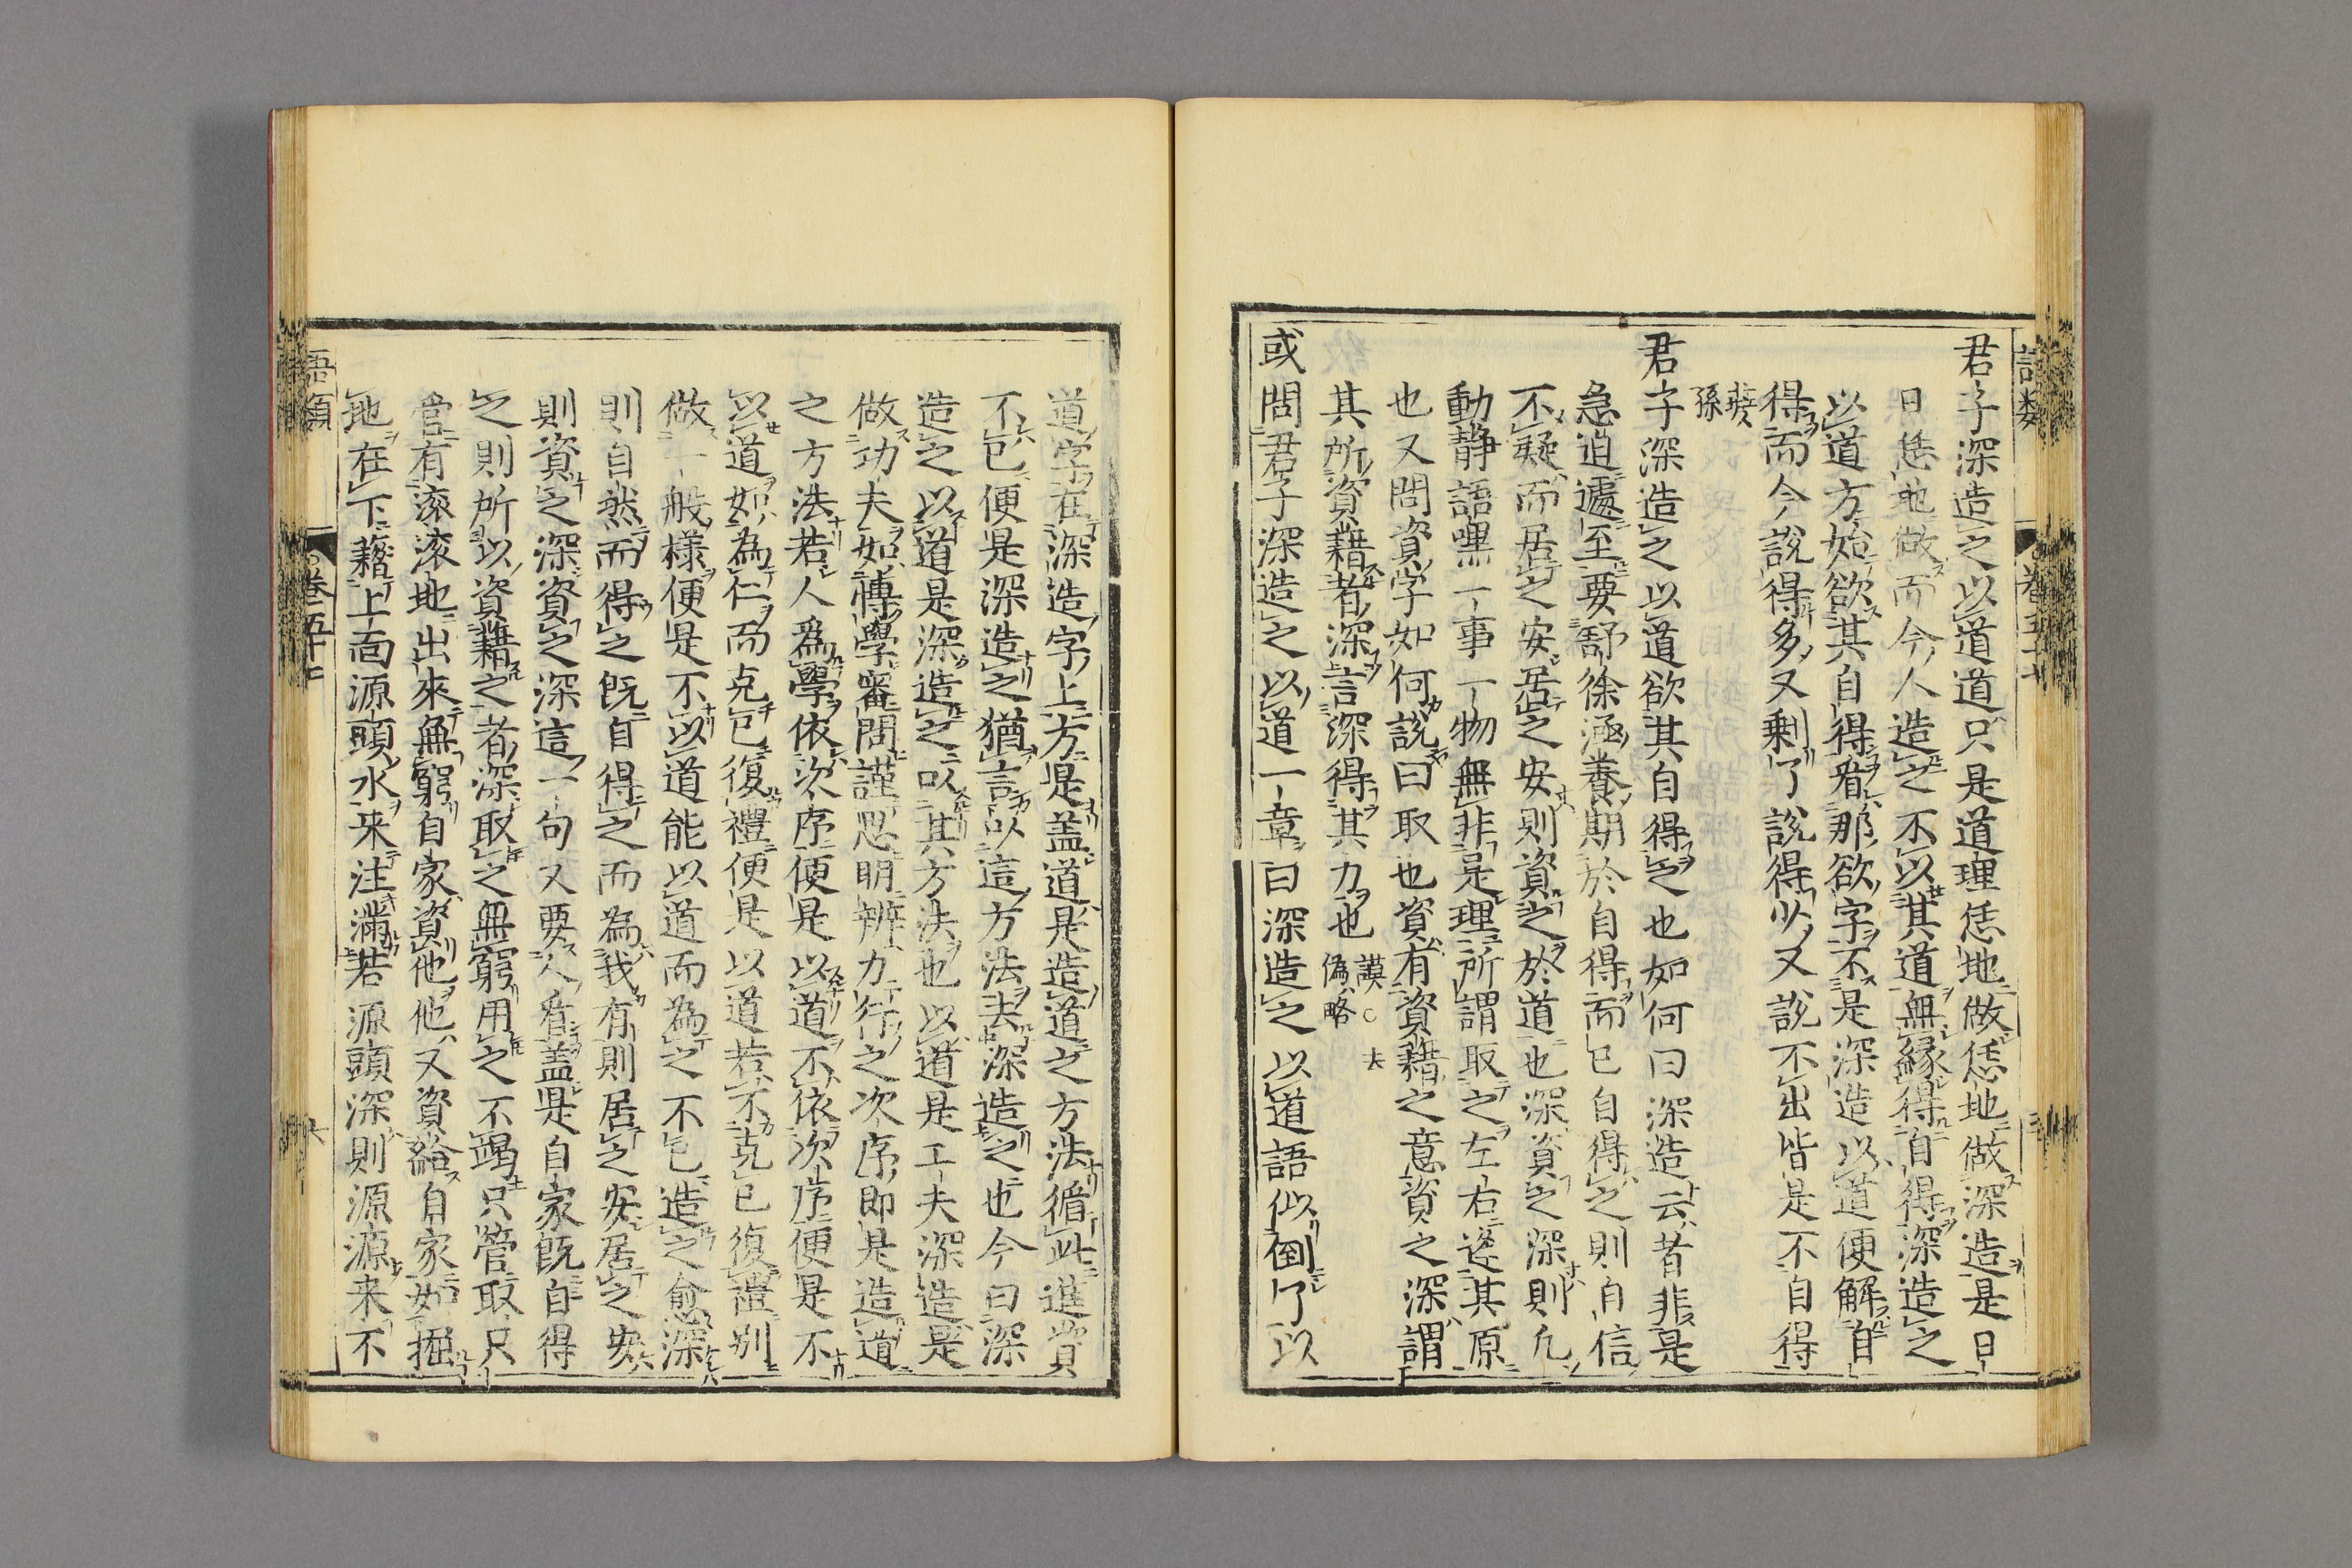 君子深造之以道道只是道理恁地做恁地做深造是日
日恁地做而今人造之不以其道無緣得自得深造之
以道方始欲其自得看那欲字不是深造以道便解自
得而今說得多又剩了說得少又說不出皆是不自得
賀孫
君子深造之以道欲其自得之也如何曰深造云者非是
急迫遽至要舒徐涵養期於自得而已自得之則自信
不疑而居之安居之安則資之於道也深資之深則凢
動静語嘿一事一物無非是理所謂取之左右逢其原
也又問資字如何說曰取也資有資藉之意資之深謂
其所資藉者深言深得其力也謨○去偽略
或問君子深造之以道一章曰深造之以道語似倒了以
道字在深造字上方是盖道是造道之方法循此進進
不已便是深造之猶言以這方法去深造之也今曰深
造之以道是深造之以其方法也以道是工夫深造是
做功夫如博學審問謹思明辨力行之次序即是造道
之方法若人爲學依次序便是以道不依次序便是不
以道如為仁而克已復禮便是以道若不克已復禮别
做一般樣便是不以道能以道而為之不已造之愈深
則自然而得之既自得之而為我有則居之安居之安
則資之深資之深這一句又要人看盖是自家既自得
之則所以資藉之者深取之無窮用之不竭只管取只
管有滚滚地出來無窮自家資他他又資給自家如掘
地在下藉上面源頭水来注滿若源頭深則源源来不
語類
卷五十七